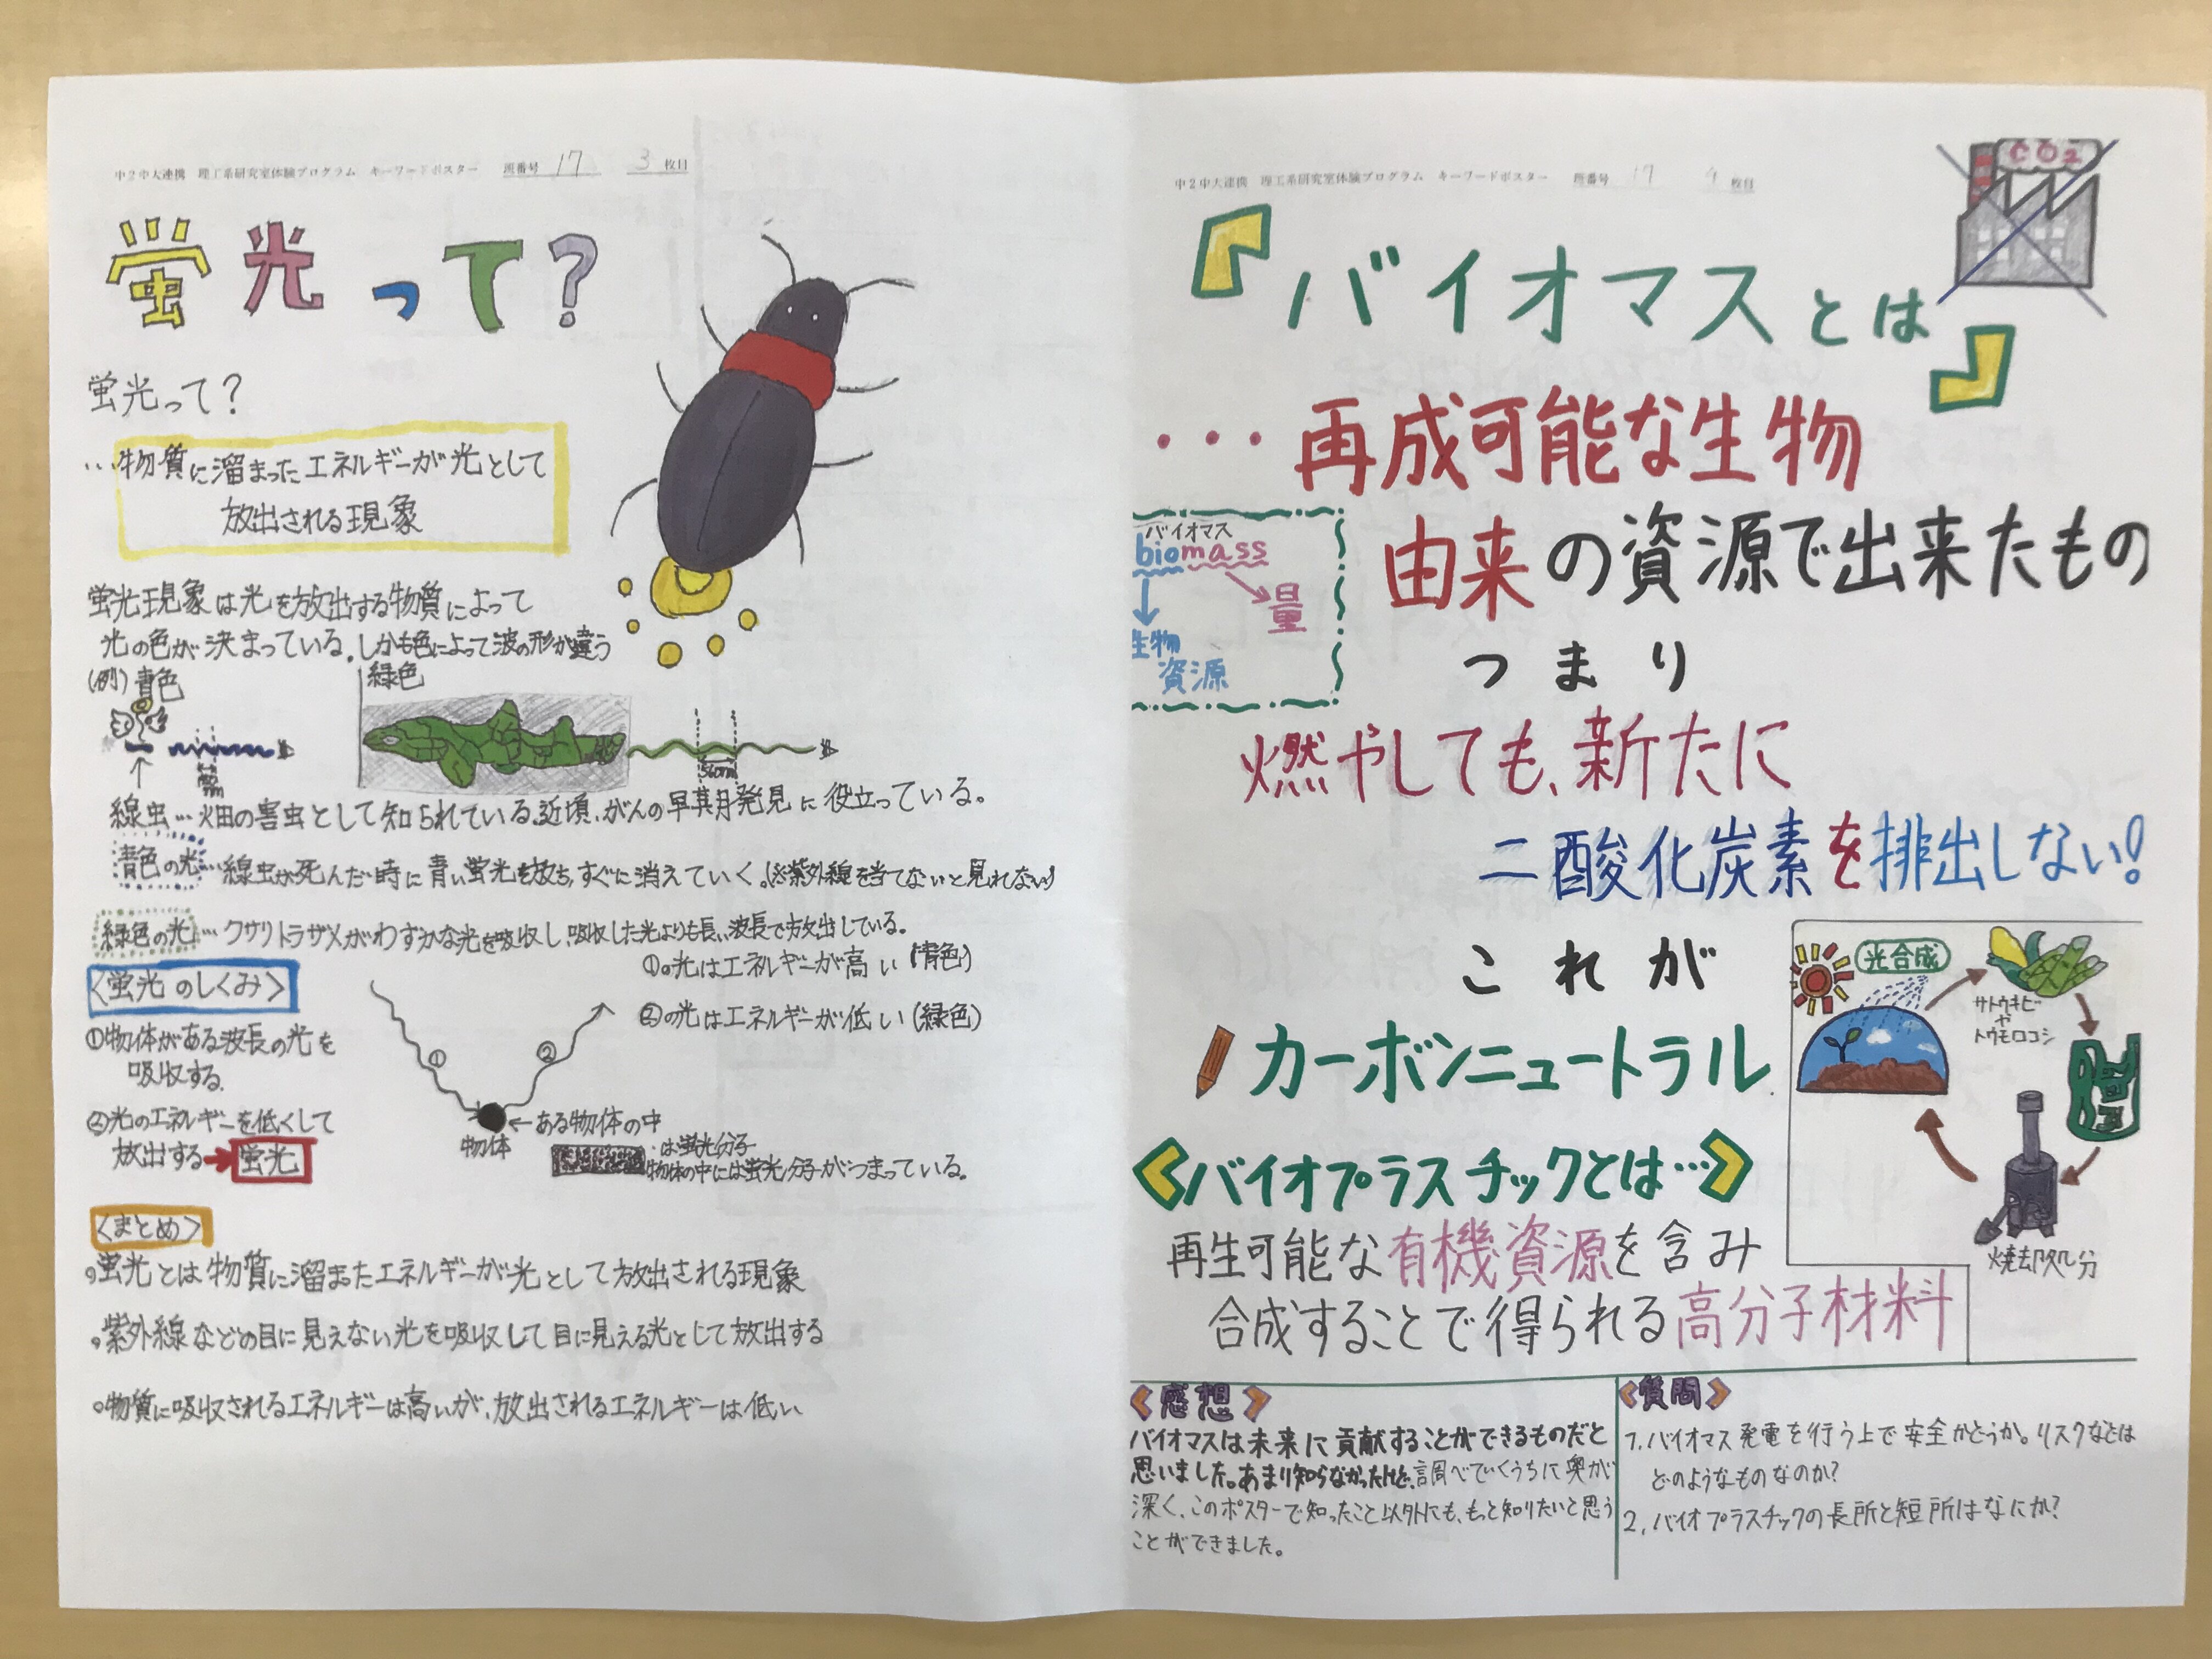 中2中大連携 理工系研究室体験プログラム キーワードポスター 班番号 17 3 枚目
蛍光って?
蛍光って?
…物質に溜まったエネルギーが光として
放出される現象
蛍光現象は光を放出する物質によって
光の色が決まっている。しかも色によって波の形が違う
(例)青色
緑色
線虫…畑の害虫として知られている。近頃、がんの早期発見に役立っている。
青色の光…線虫が死んだ時に青い蛍光を放ち、すぐに消えていく。(※紫外線を当てないと見れない)
緑色の光…クサリトラザメがわずかな光を吸収し、吸収した光よりも長い波長で放出している。
①の光はエネルギーが高い(青色)
②の光はエネルギーが低い(緑色)
〈蛍光のしくみ〉
①物体がある波長の光を
吸収する。
②光のエネルギーを低くして
放出する→蛍光
①
②
物体
←ある物体の中
・は蛍光分子
物体の中には蛍光分子がつまっている。
〈まとめ〉
。蛍光とは物質に溜まったエネルギーが光として放出される現象
。紫外線などの目に見えない光を吸収して目に見える光として放出する
。物質に吸収されるエネルギーは高いが、放出されるエネルギーは低い
中2中大連携 理工系研究室体験プログラム キーワードポスター 班番号 17 4 枚目
CO2
『バイオマスとは』
…再成可能な生物
由来の資源で出来たもの
バイオマス
biomass
量
生物
資源
つまり
燃やしても、新たに
二酸化炭素を排出しない!
これが
カーボンニュートラル
光合成
サトウキビ
や
トウモロコシ
焼却処分
《バイオプラスチックとは…》
再生可能な有機資源を含み
合成することで得られる高分子材料
《感想》
バイオマスは未来に貢献することができるものだと
思いました。あまり知らなかったけど、調べていくうちに奥が
深く、このポスターで知ったこと以外にも、もっと知りたいと思う
ことができました。
《質問》
1. バイオマス発電を行う上で安全かどうか。リスクなどは
どのようなものなのか?
2. バイオプラスチックの長所と短所はなにか?